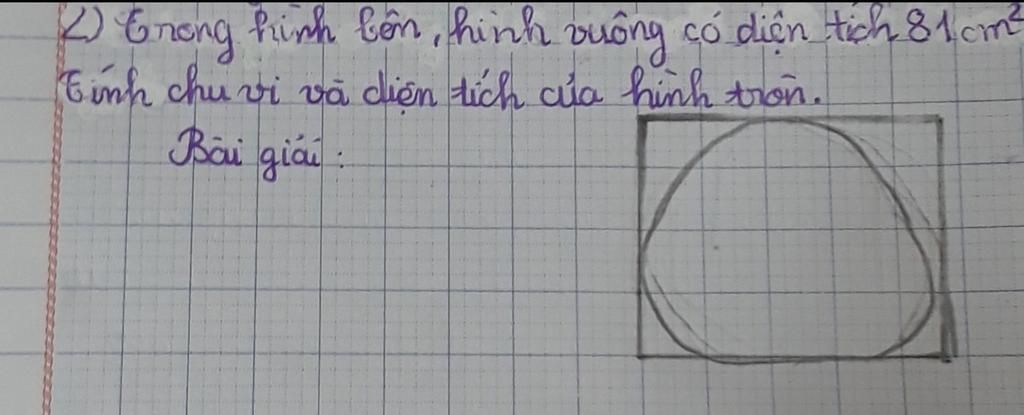 2) Trong hình bên, hình vuông có diện tích 81cm²
Tính chu vi và diện tích của hình tròn.
Bài giải: